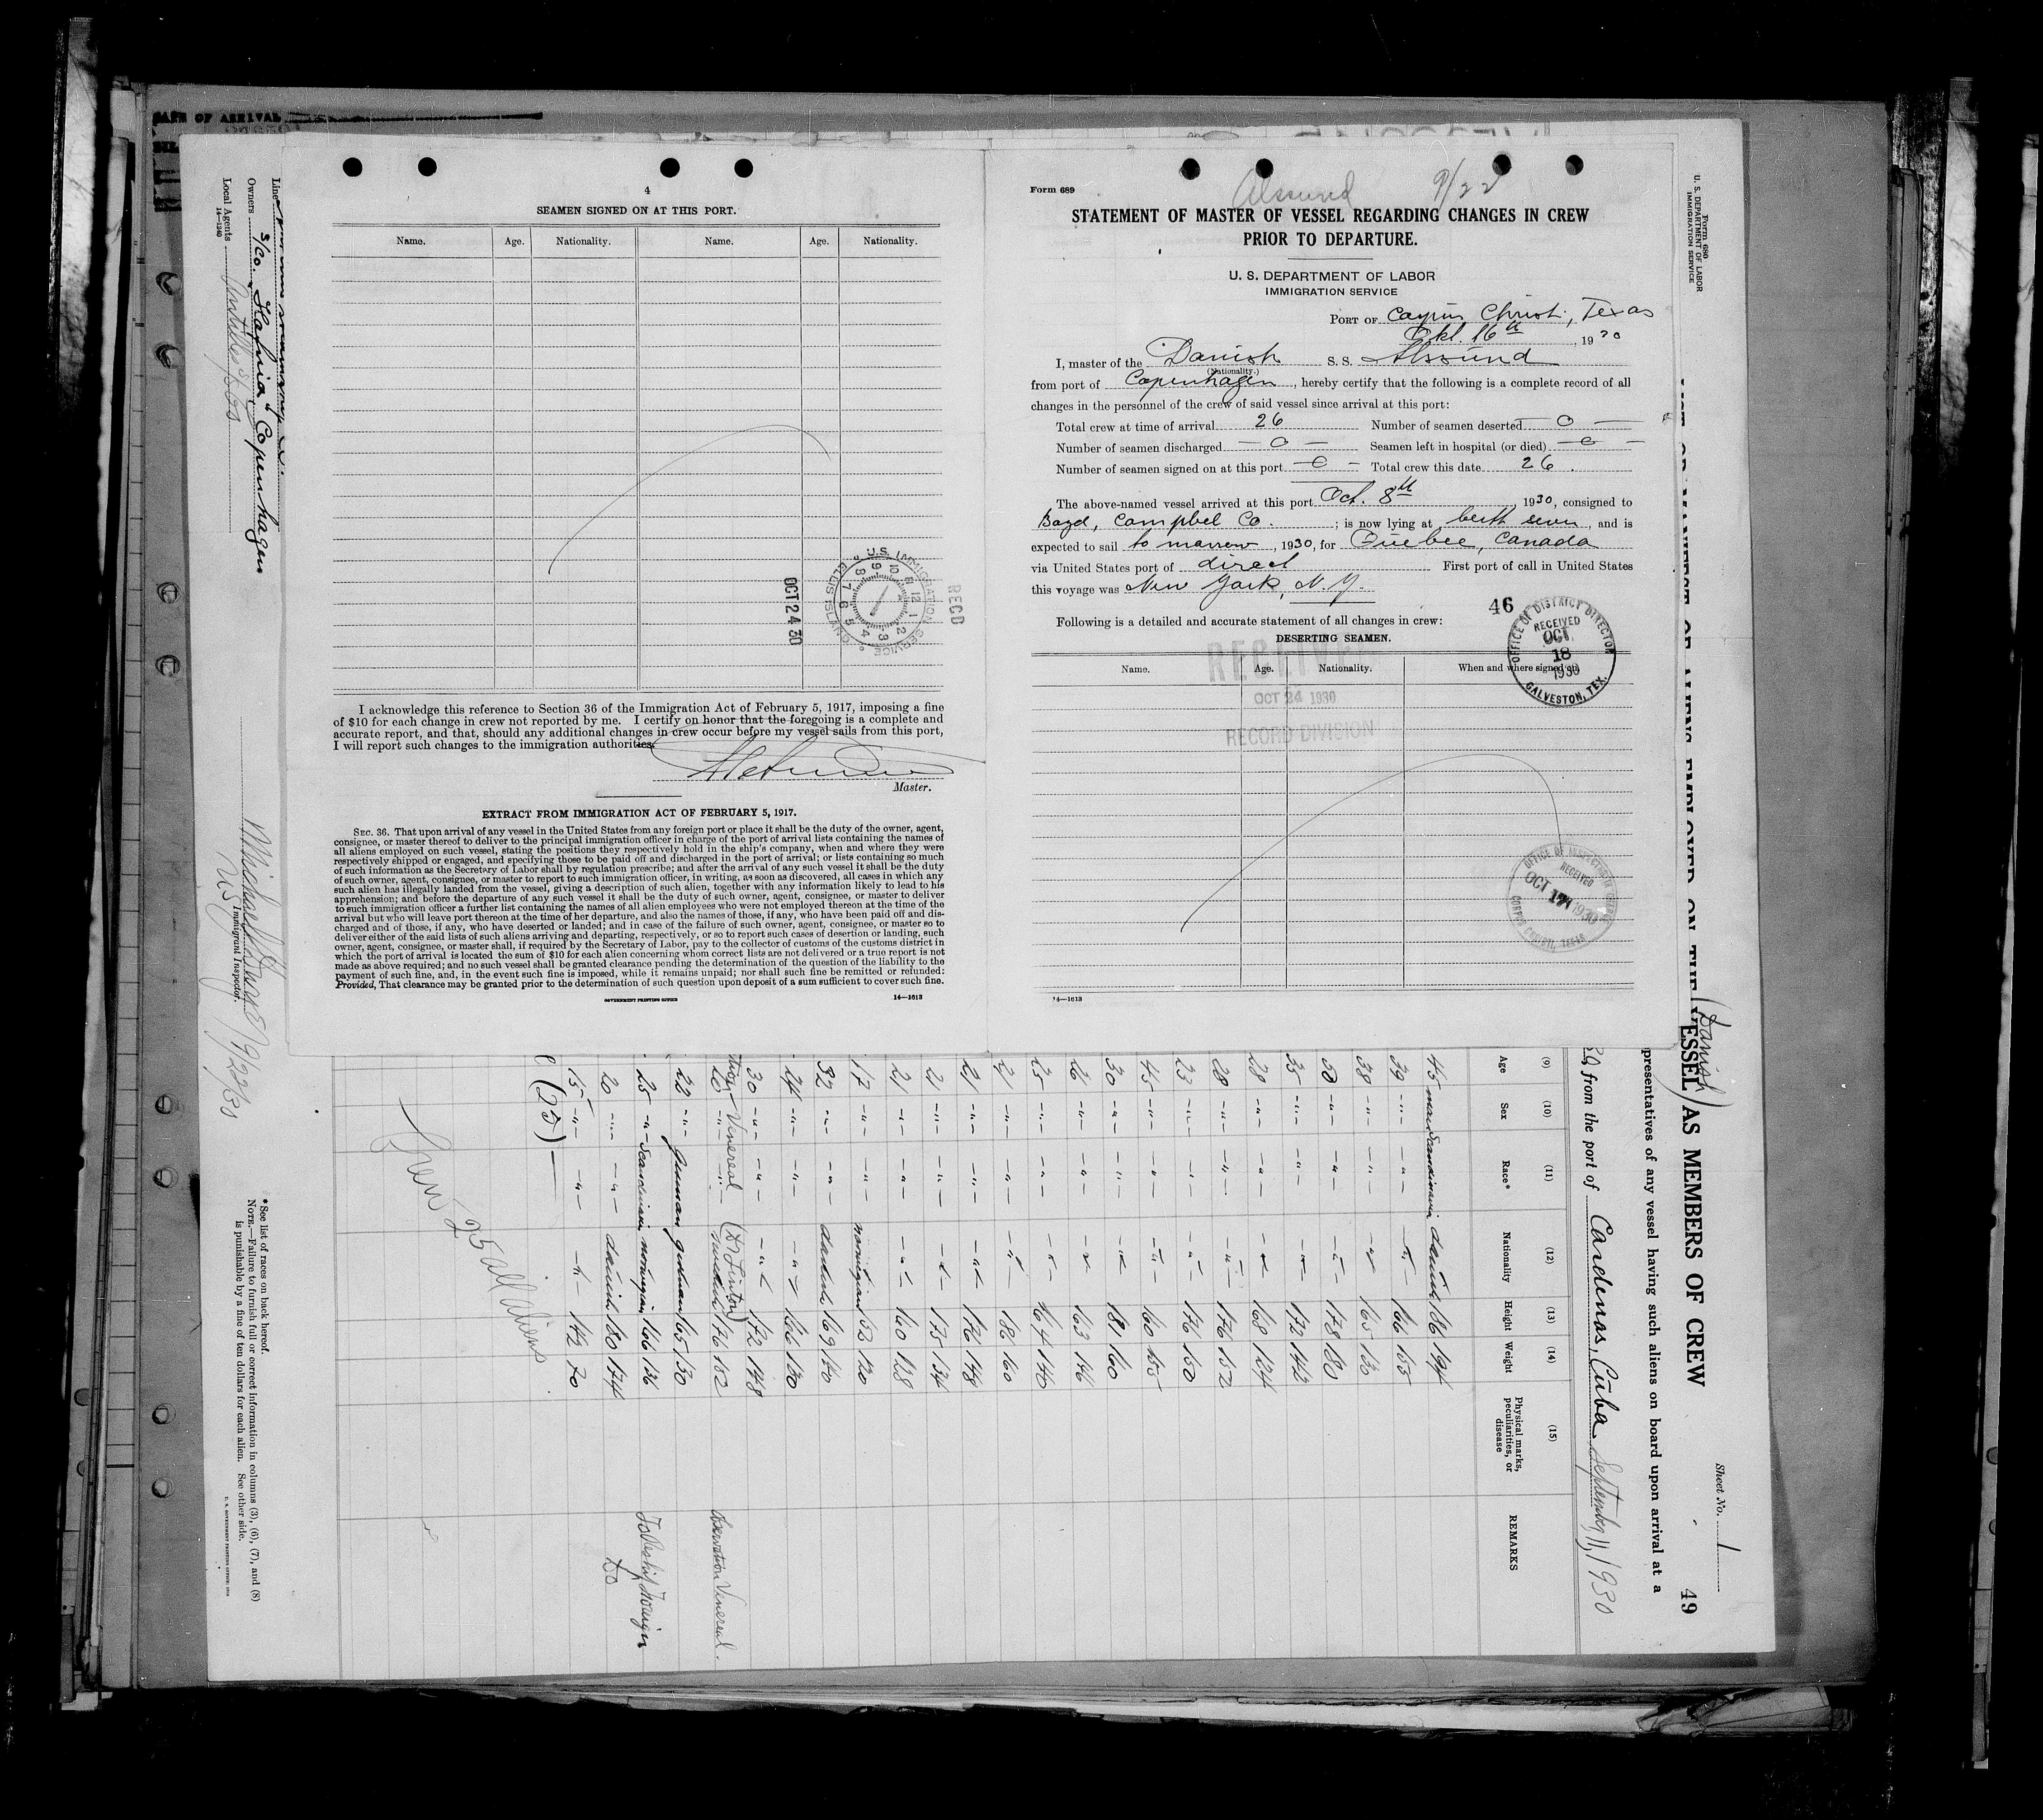 DATE OF ARRIVAL
4
SEAMEN SIGNED ON AT THIS PORT.
Name. Age. Nationality. Name. Age. Nationality.
U.S. IMMIGRATION SERVICE
ELLIS ISLAND
OCT 24 30
RECD
I acknowledge this reference to Section 36 of the Immigration Act of February 5, 1917, imposing a fine
of $10 for each change in crew not reported by me. I certify on honor that the foregoing is a complete and
accurate report, and that, should any additional changes in crew occur before my vessel sails from this port,
I will report such changes to the immigration authorities.
Master.
EXTRACT FROM IMMIGRATION ACT OF FEBRUARY 5, 1917.
SEC. 36. That upon arrival of any vessel in the United States from any foreign port or place it shall be the duty of the owner, agent,
consignee, or master thereof to deliver to the principal immigration officer in charge of the port of arrival lists containing the names of
all aliens employed on such vessel, stating the positions they respectively hold in the ship's company, when and where they were
respectively shipped or engaged, and specifying those to be paid off and discharged in the port of arrival; or lists containing so much
of such information as the Secretary of Labor shall by regulation prescribe; and after the arrival of any such vessel it shall be the duty
of such owner, agent, consignee, or master to report to such immigration officer, in writing, as soon as discovered, all cases in which any
such alien has illegally landed from the vessel, giving a description of such alien, together with any information likely to lead to his
apprehension; and before the departure of any such vessel it shall be the duty of such owner, agent, consignee, or master to deliver
to such immigration officer a further list containing the names of all alien employees who were not employed thereon at the time of the
arrival but who will leave port thereon at the time of her departure, and also the names of those, if any, who have been paid off and dis-
charged and of those, if any, who have deserted or landed; and in case of the failure of such owner, agent, consignee, or master so to
deliver either of the said lists of such aliens arriving and departing, respectively, or so to report such cases of desertion or landing, such
owner, agent, consignee, or master shall, if required by the Secretary of Labor, pay to the collector of customs of the customs district in
which the port of arrival is located the sum of $10 for each alien concerning whom correct lists are not delivered or a true report is not
made as above required; and no such vessel shall be granted clearance pending the determination of the question of the liability to the
payment of such fine, and, in the event such fine is imposed, while it remains unpaid; nor shall such fine be remitted or refunded:
Provided, That clearance may be granted prior to the determination of such question upon deposit of a sum sufficient to cover such fine.
GOVERNMENT PRINTING OFFICE 14—1613
Form 689
Alssund 9/22
STATEMENT OF MASTER OF VESSEL REGARDING CHANGES IN CREW
PRIOR TO DEPARTURE.
U. S. DEPARTMENT OF LABOR
IMMIGRATION SERVICE
PORT OF Corpus Christi, Texas
Okt. 16th, 1930
I, master of the Danish S. S. Alssund
(Nationality.)
from port of Copenhagen, hereby certify that the following is a complete record of all
changes in the personnel of the crew of said vessel since arrival at this port:
Total crew at time of arrival 26 Number of seamen deserted — 0 —
Number of seamen discharged — 0 — Seamen left in hospital (or died) — 0 —
Number of seamen signed on at this port — 0 — Total crew this date 26.
The above-named vessel arrived at this port Oct. 8th, 1930, consigned to
Boyd, Campbel Co.; is now lying at berth seven, and is
expected to sail to morrow, 1930, for Quebec, Canada
via United States port of direct First port of call in United States
this voyage was New York, N.Y.
Following is a detailed and accurate statement of all changes in crew:
46
OFFICE OF DISTRICT DIRECTOR
RECEIVED
OCT
18
1930
GALVESTON, TEX.
DESERTING SEAMEN.
Name. Age. Nationality. When and where signed on.
RECEIVED
OCT 24 1930
RECORD DIVISION
RECEIVED
OCT 17 1930
CORPUS CHRISTI, TEXAS
14—1613
Owners s/Co. Hafnia Copenhagen
Local Agents
14—1240
Immigrant Inspector.
9/22/30
Form 680
U. S. DEPARTMENT OF LABOR
IMMIGRATION SERVICE
Sheet No. 1
49
(Danish)
VESSEL AS MEMBERS OF CREW
presentatives of any vessel having such aliens on board upon arrival at a
from the port of Cardenas, Cuba September 11, 1930
(9) (10) (11) (12) (13) (14) (15)
Age Sex Race* Nationality Height Weight Physical marks, peculiarities, or disease REMARKS
45 male Scandinavian danish 186 194
39 166 155
38 165 130
30 178 180
35 172 142
28 168 124
28 176 152
23 176 150
45 160 155
30 181 160
26 163 146
25 164 140
21 186 160
21 176 148
21 175 134
21 160 128
17 norwegian 152 120
32 danish 169 140
24 166 130
30 172 148
20 176 152
Venereal (Dr Linton) Venereal.
22 german german 165 130
25 Scandinavian norwegian 166 136 To Reship Foreign
20 danish 180 174 Do
15 142 70
(25)
Crew 25 all aliens
*See list of races on back hereof.
NOTE.—Failure to furnish full or correct information in columns (3), (6), (7), and (8)
is punishable by a fine of ten dollars for each alien. See other side.